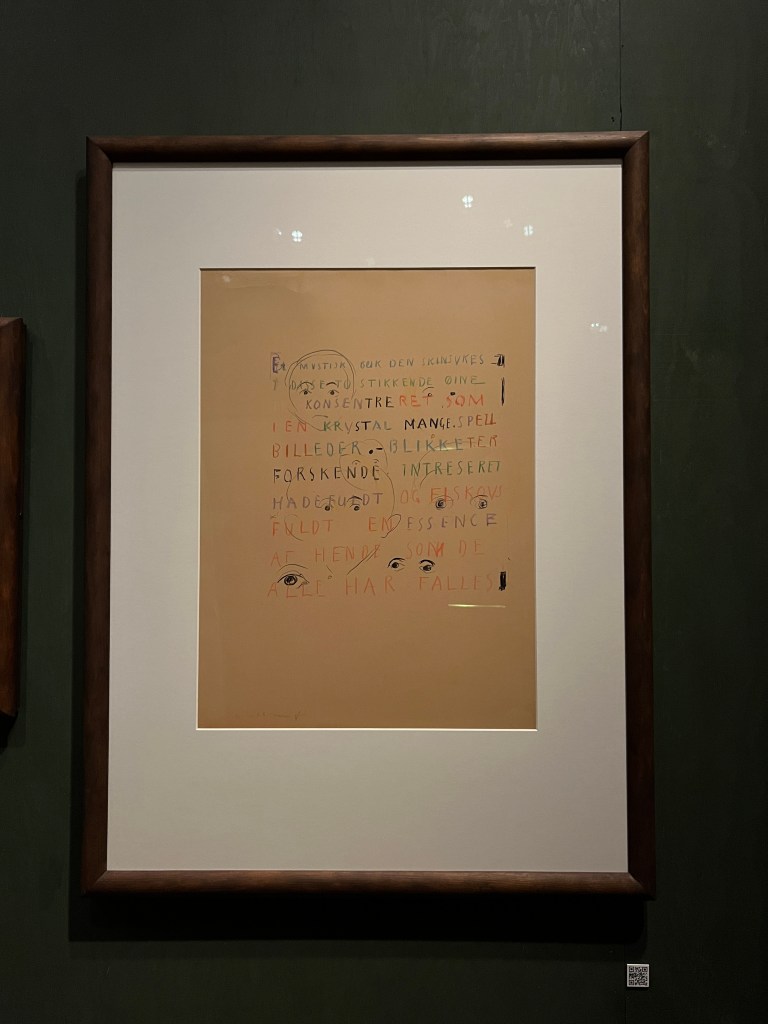 EN MYSTISK BLIK DEN SKINSYKES
I DISSE TO STIKKENDE ØINE
KONSENTRERET SOM
I EN KRYSTAL MANGE SPEIL
BILLEDER.– BLIKKET ER
FORSKENDE INTRESERET
HADEFULDT OG ELSKOVS
FULDT EN ESSENCE
AF HENDE SOM DE
ALLE HAR FÆLLES